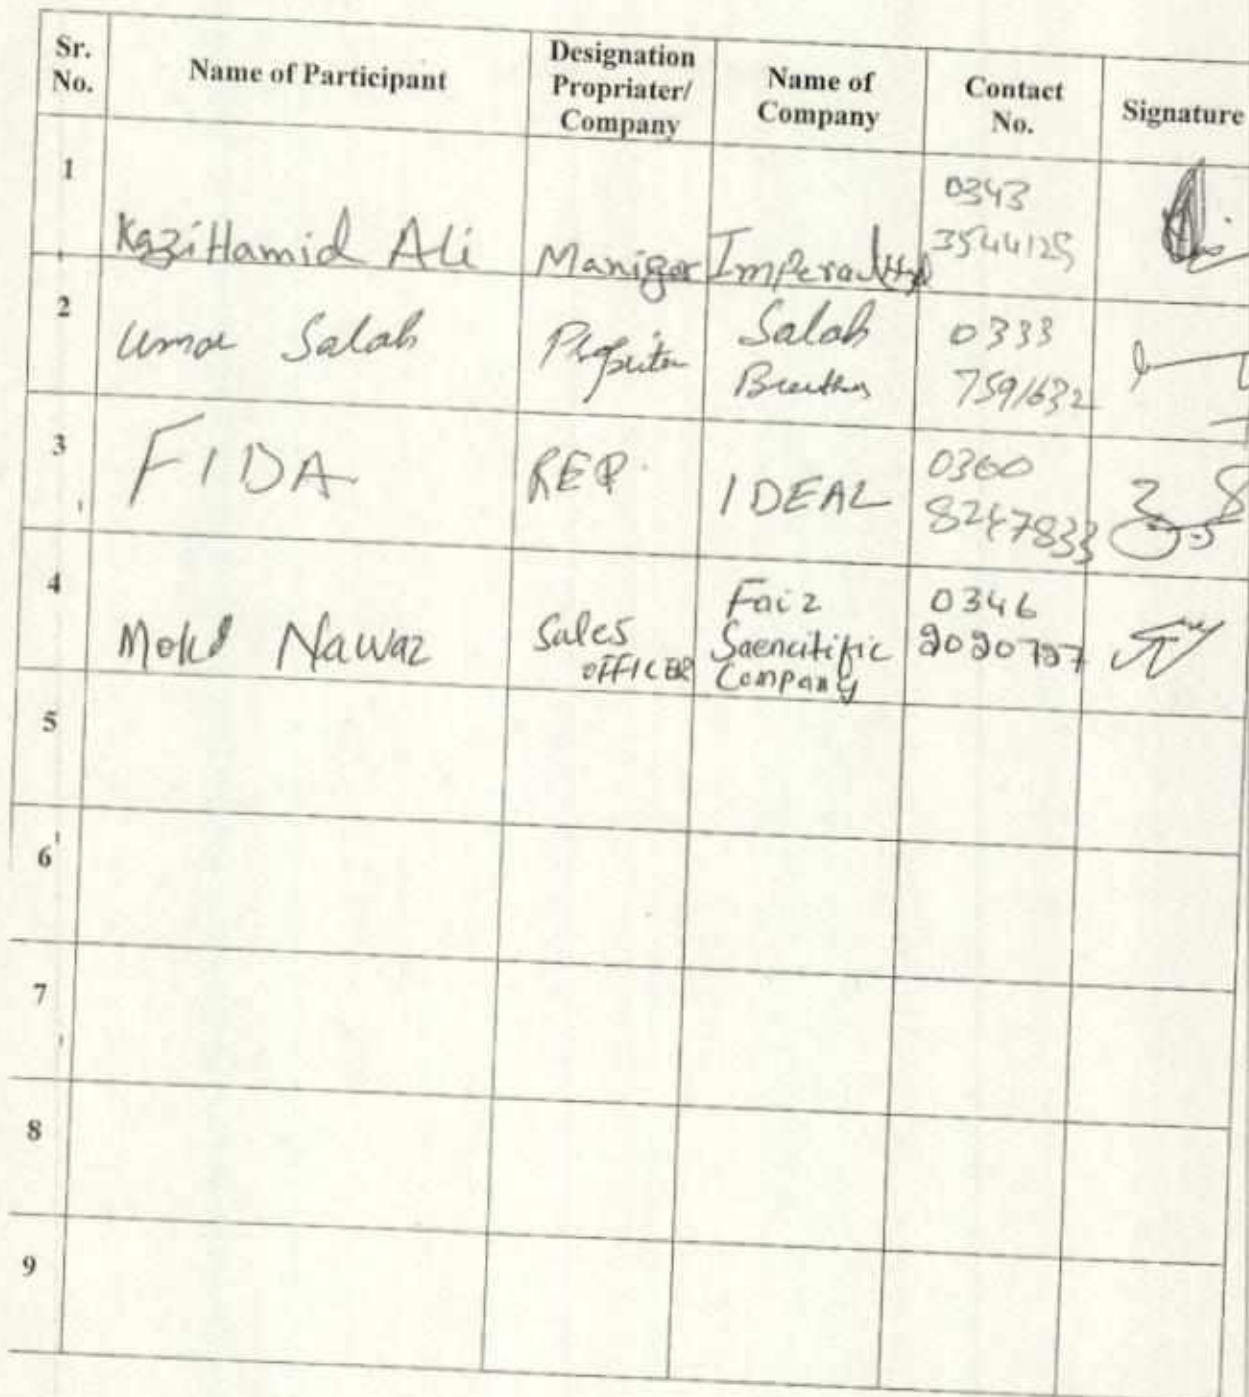 Sr. No. Name of Participant Designation Propriater/ Company Name of Company Contact No. Signature
1 Kazi Hamid Ali Manigor Imperal Hyd 0343 3544125
2 Umar Salah Salah 0333 7591632
3 FIDA REP. IDEAL 0300 8247833
4 Mohd Nawaz Sales OFFICER Faiz Saencitific Company 0346
5
6
7
8
9